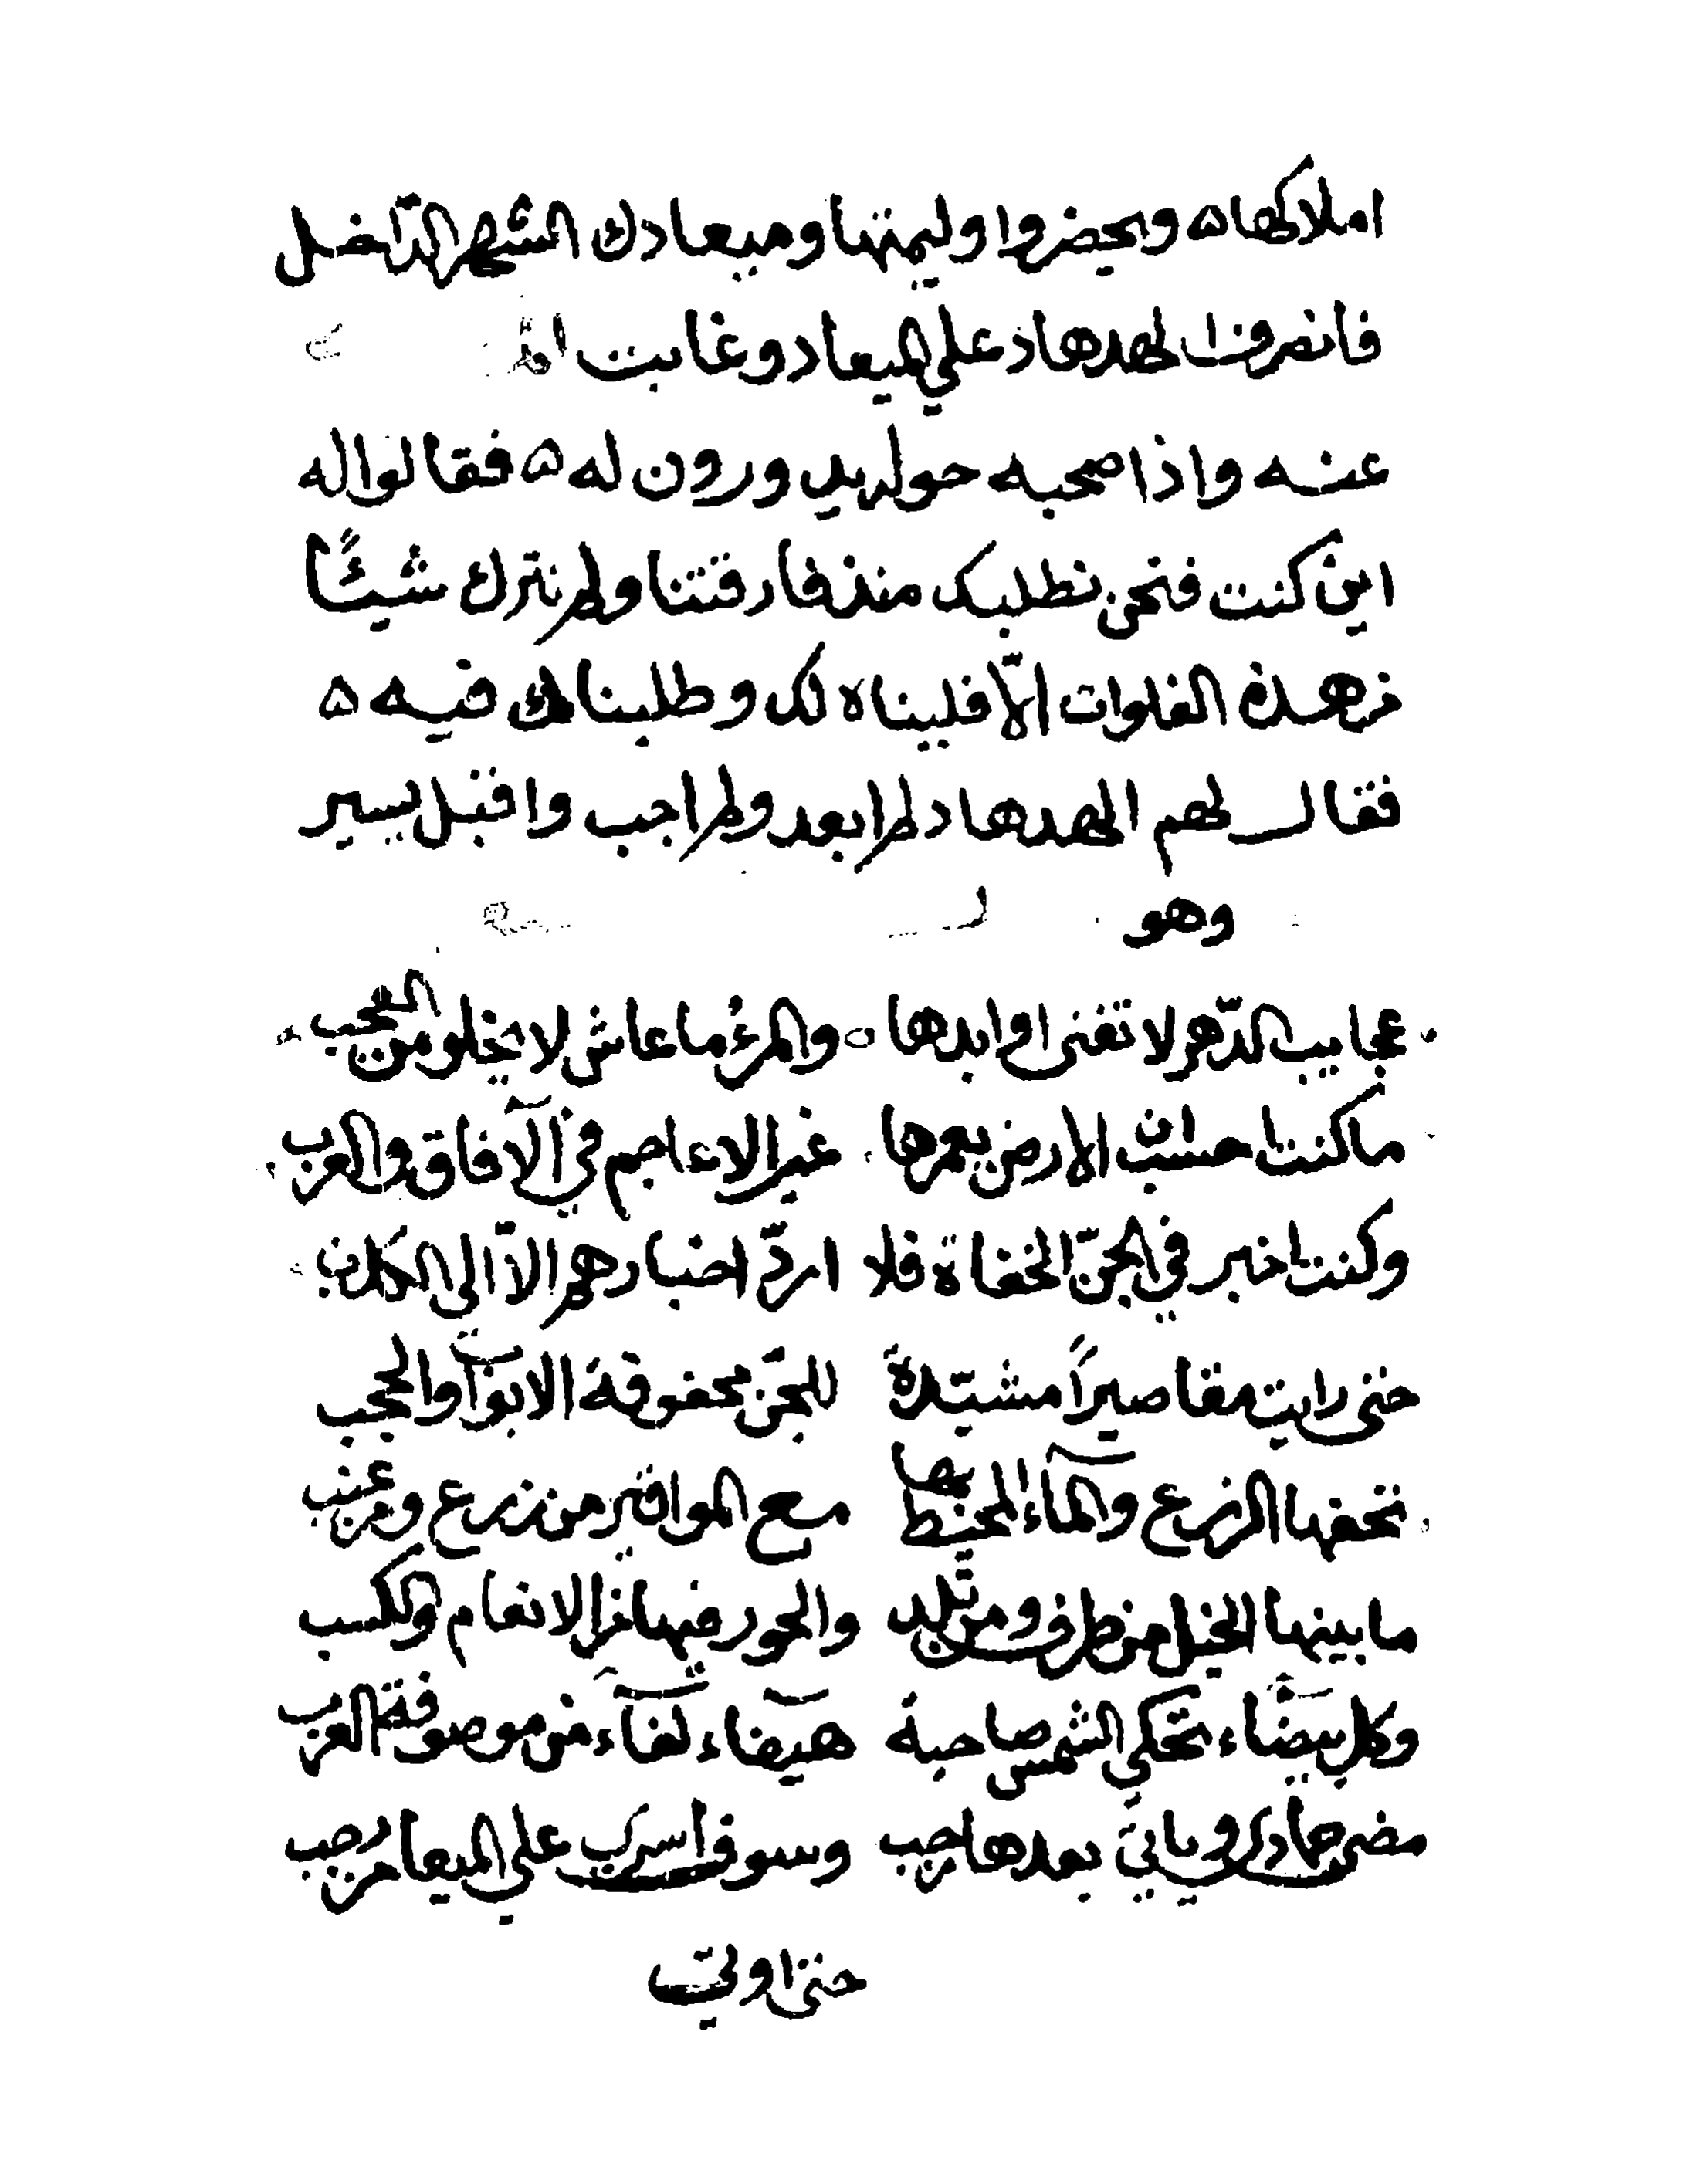 املاكها ه ويحضروا وليمتها وميعادك الشهر الداخل
فانصرف الهدهاد علي الميعاد وغابت
عنه واذا صحبه حوله يدورون له ه فقالوا له
اين كنت فنحن نطلبك منذ فارقتنا ولم نترك شيئًا
من هذه الفلوات الّا فليناه لك وطلبناك فيه ه
فقال لهم الهدهاد لم ابعد ولم اجب واقبل يسير
وهو
عجايب الدّهر لا تفنى اوابدها ه والمرءُ ما عاش لا يخلو من العجب
ما كنت احسب ان الارض يعمرها غير الاعاجم في الآفاق والعرب
وكنت اخبر في الجنّ الخفاة فلا اردّ اخبارهم الّا الى الكذب
حتى رايت مقاصيرًا مشيّدةً للجنّ محفوفة الابواب والحجب
تحفها الزرع والماء المحيط بها مع المواقير من زرع ومن عنب
ما بينها الخيل من طرف ومن تلد والحور فيها من الانعام والكسب
وكل بيضاء تحكي الشمس صاحبة هيفاء لفاء من موصوفة العرب
مضى جمادى وياتي بعدها رجب وسوف اسري علي الميعاد من رجب
حتى اوافي